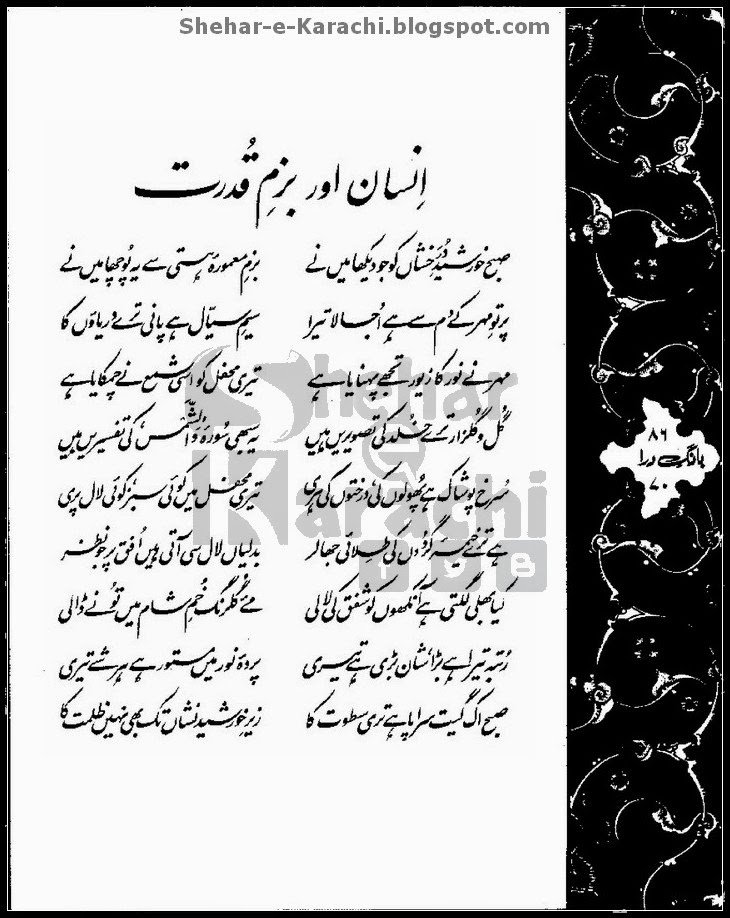 Shehar-e-Karachi.blogspot.com
اِنسان اور بزمِ قُدرت
صبح خورشیدِ دُرَخشاں کو جو دیکھا میں نے بزمِ معمورۂ ہستی سے یہ پُوچھا میں نے
پرتوِ مہر کے دَم سے ہے اُجالا تیرا سیمِ سیّال ہے پانی ترے دریاؤں کا
مہر نے نور کا زیور تجھے پہنایا ہے تیری محفل کو اسی شمع نے چمکایا ہے
گُل و گُلزار ترے خُلد کی تصویریں ہیں یہ سبھی سُورۂ وَالشَّمس کی تفسیریں ہیں
سُرخ پوشاک ہے پھُولوں کی، درختوں کی ہری تیری محفل میں کوئی سبز، کوئی لال پری
ہے ترے خیمۂ گردُوں کی طلائی جھالر بدلیاں لال سی آتی ہیں اُفق پر جو نظر
کیا بھلی لگتی ہے آنکھوں کو شفق کی لالی مئے گُلرنگ خُمِ شام میں تُو نے ڈالی
رُتبہ تیرا ہے بڑا، شان بڑی ہے تیری پردۂ نور میں مستور ہے ہر شے تیری
صبح اک گیت سراپا ہے تری سطوت کا زیرِ خورشید نشاں تک بھی نہیں ظلمت کا
۸۶
بانگِ درا
۷۰
Shehar
e
Karachi